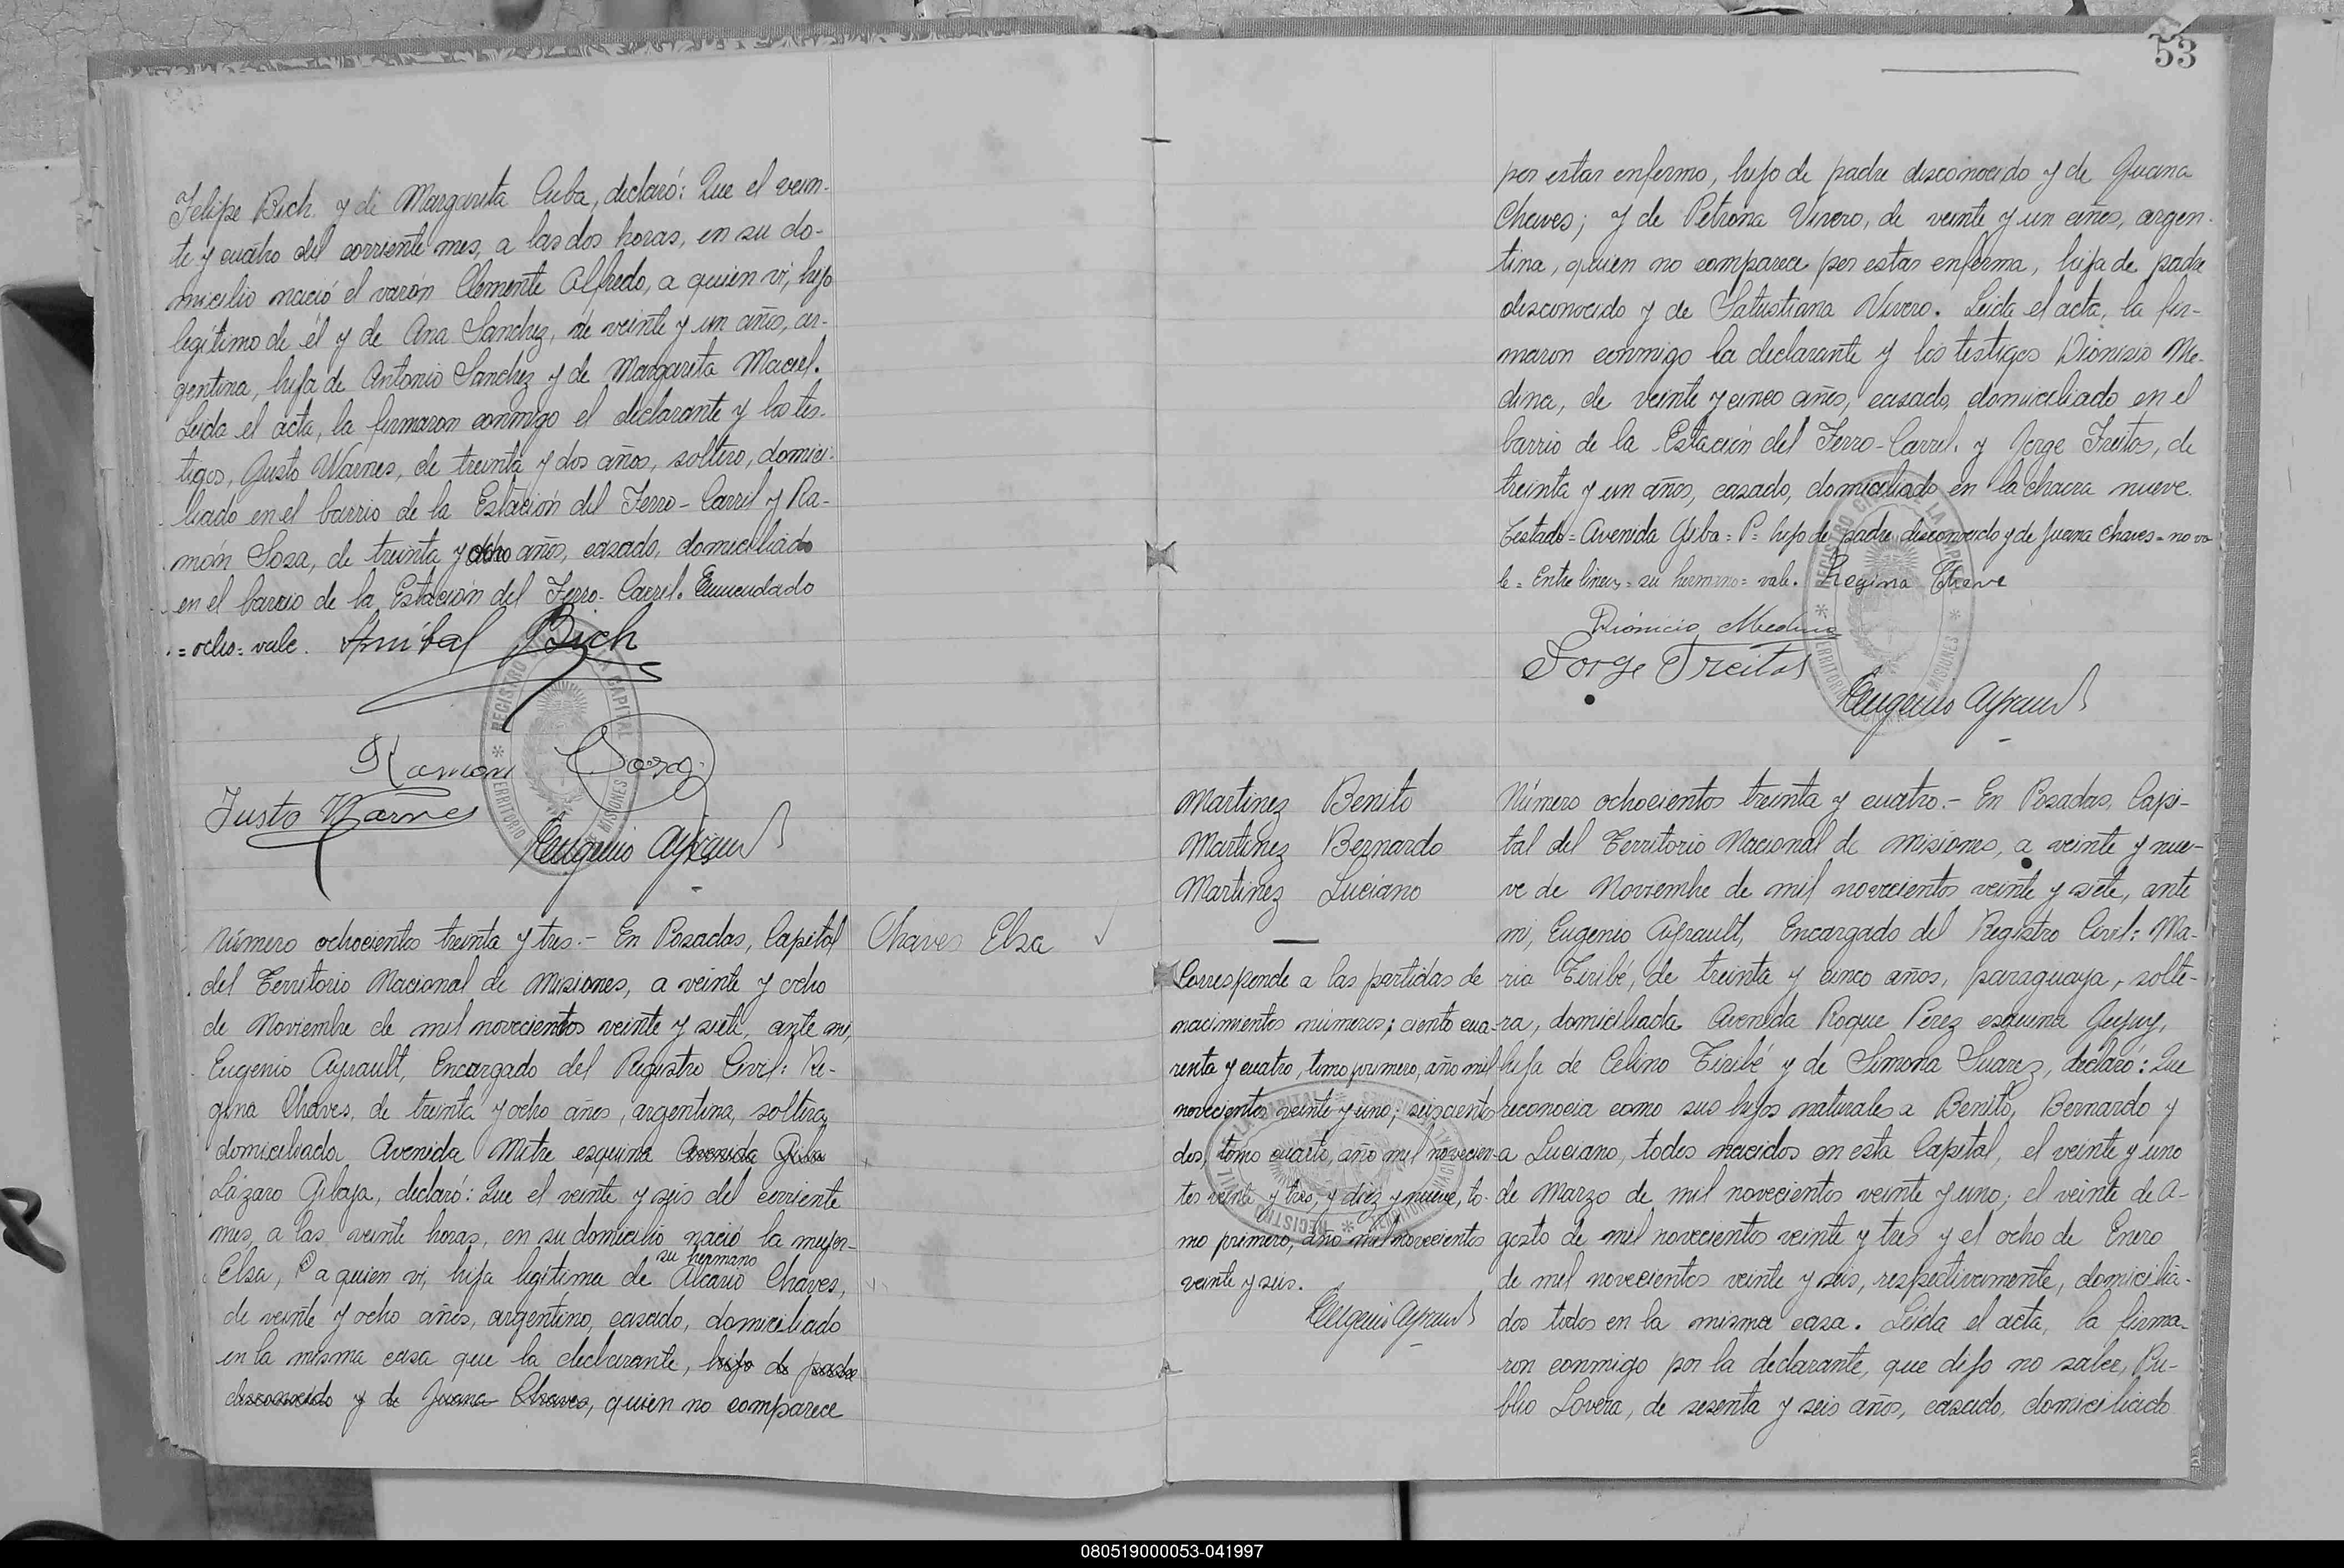 Felipe Bich y de Margarita Cuba, declaró: Que el vein-
te y cuatro del corriente mes, a las dos horas, en su do-
micilio nació el varón Clemente Alfredo, a quien vi, hijo
legítimo de él y de Ana Sanchez, de veinte y un años, ar-
gentina, hija de Antonio Sanchez y de Margarita Maciel.
Leida el acta, la firmaron conmigo el declarante y los tes-
tigos, Justo Warnes, de treinta y dos años, soltero, domici-
liado en el barrio de la Estación del Ferro-Carril y Ra-
món Sosa, de treinta y ocho años, casado, domiciliado
en el barrio de la Estación del Ferro-Carril. Enmendado
=ocho= vale. Anibal Bich
Ramon Sosa
Justo Warnes
Eugenio Ayrault
REGISTRO CAPITAL TERRITORIO MISIONES
Número ochocientos treinta y tres.- En Posadas, Capital
del Territorio Nacional de Misiones, a veinte y ocho
de Noviembre de mil novecientos veinte y siete, ante mi,
Eugenio Ayrault, Encargado del Registro Civil: Re-
gina Chaves, de treinta y ocho años, argentina, soltera,
domiciliada Avenida Mitre esquina Avenida
Lázaro Gibaja, declaró: Que el veinte y seis del corriente
mes, a las veinte horas, en su domicilio nació la mujer
su hermano
Elsa, P a quien vi, hija legítima de Alcario Chaves,
de veinte y ocho años, argentino, casado, domiciliado
en la misma casa que la declarante, hijo de padre
desconocido y de Juana Chaves, quien no comparece
Chaves Elsa
53
por estar enfermo, hijo de padre desconocido y de Juana
Chaves; y de Petrona Vivero, de veinte y un años, argen-
tina, quien no comparece por estar enferma, hija de padre
desconocido y de Salustiana Vivero. Leida el acta, la fir-
maron conmigo la declarante y los testigos Dionisio Me-
dina, de veinte y cinco años, casado, domiciliado en el
barrio de la Estación del Ferro-Carril, y Jorge Freitas, de
treinta y un años, casado, domiciliado en la chacra nueve.
Testado= Avenida = P= hijo de padre desconocido y de Juana Chaves= no va-
le= Entre lineas= su hermano= vale. Regina Chave
Dionicio Medina
Jorge Freitas
Eugenio Ayrault
REGISTRO CIVIL LA CAPITAL TERRITORIO MISIONES
Martinez Benito
Martinez Bernardo
Martinez Luciano
Corresponde a las partidas de
nacimientos números; ciento cua-
renta y cuatro, tomo primero, año mil
novecientos veinte y uno; seiscientos
dos, tomo cuarto, año mil novecien-
tos veinte y tres, y diez y nueve, to-
mo primero, año mil novecientos
veinte y seis.
Eugenio Ayrault
Número ochocientos treinta y cuatro.- En Posadas, Capi-
tal del Territorio Nacional de Misiones, a veinte y nue-
ve de Noviembre de mil novecientos veinte y siete, ante
mi, Eugenio Ayrault, Encargado del Registro Civil: Ma-
ria Tiribé, de treinta y cinco años, paraguaya, solte-
ra, domiciliada Avenida Roque Pérez esquina Jujuy,
hija de Celino Tiribé y de Simona Suarez, declaró: Que
reconocia como sus hijos naturales a Benito, Bernardo y
a Luciano, todos nacidos en esta Capital, el veinte y uno
de Marzo de mil novecientos veinte y uno; el veinte de A-
gosto de mil novecientos veinte y tres y el ocho de Enero
de mil novecientos veinte y seis, respectivamente, domicilia-
dos todos en la misma casa. Leída el acta, la firma-
ron conmigo por la declarante, que dijo no saber, Pu-
blio Lovera, de sesenta y seis años, casado, domiciliado
080519000053-041997